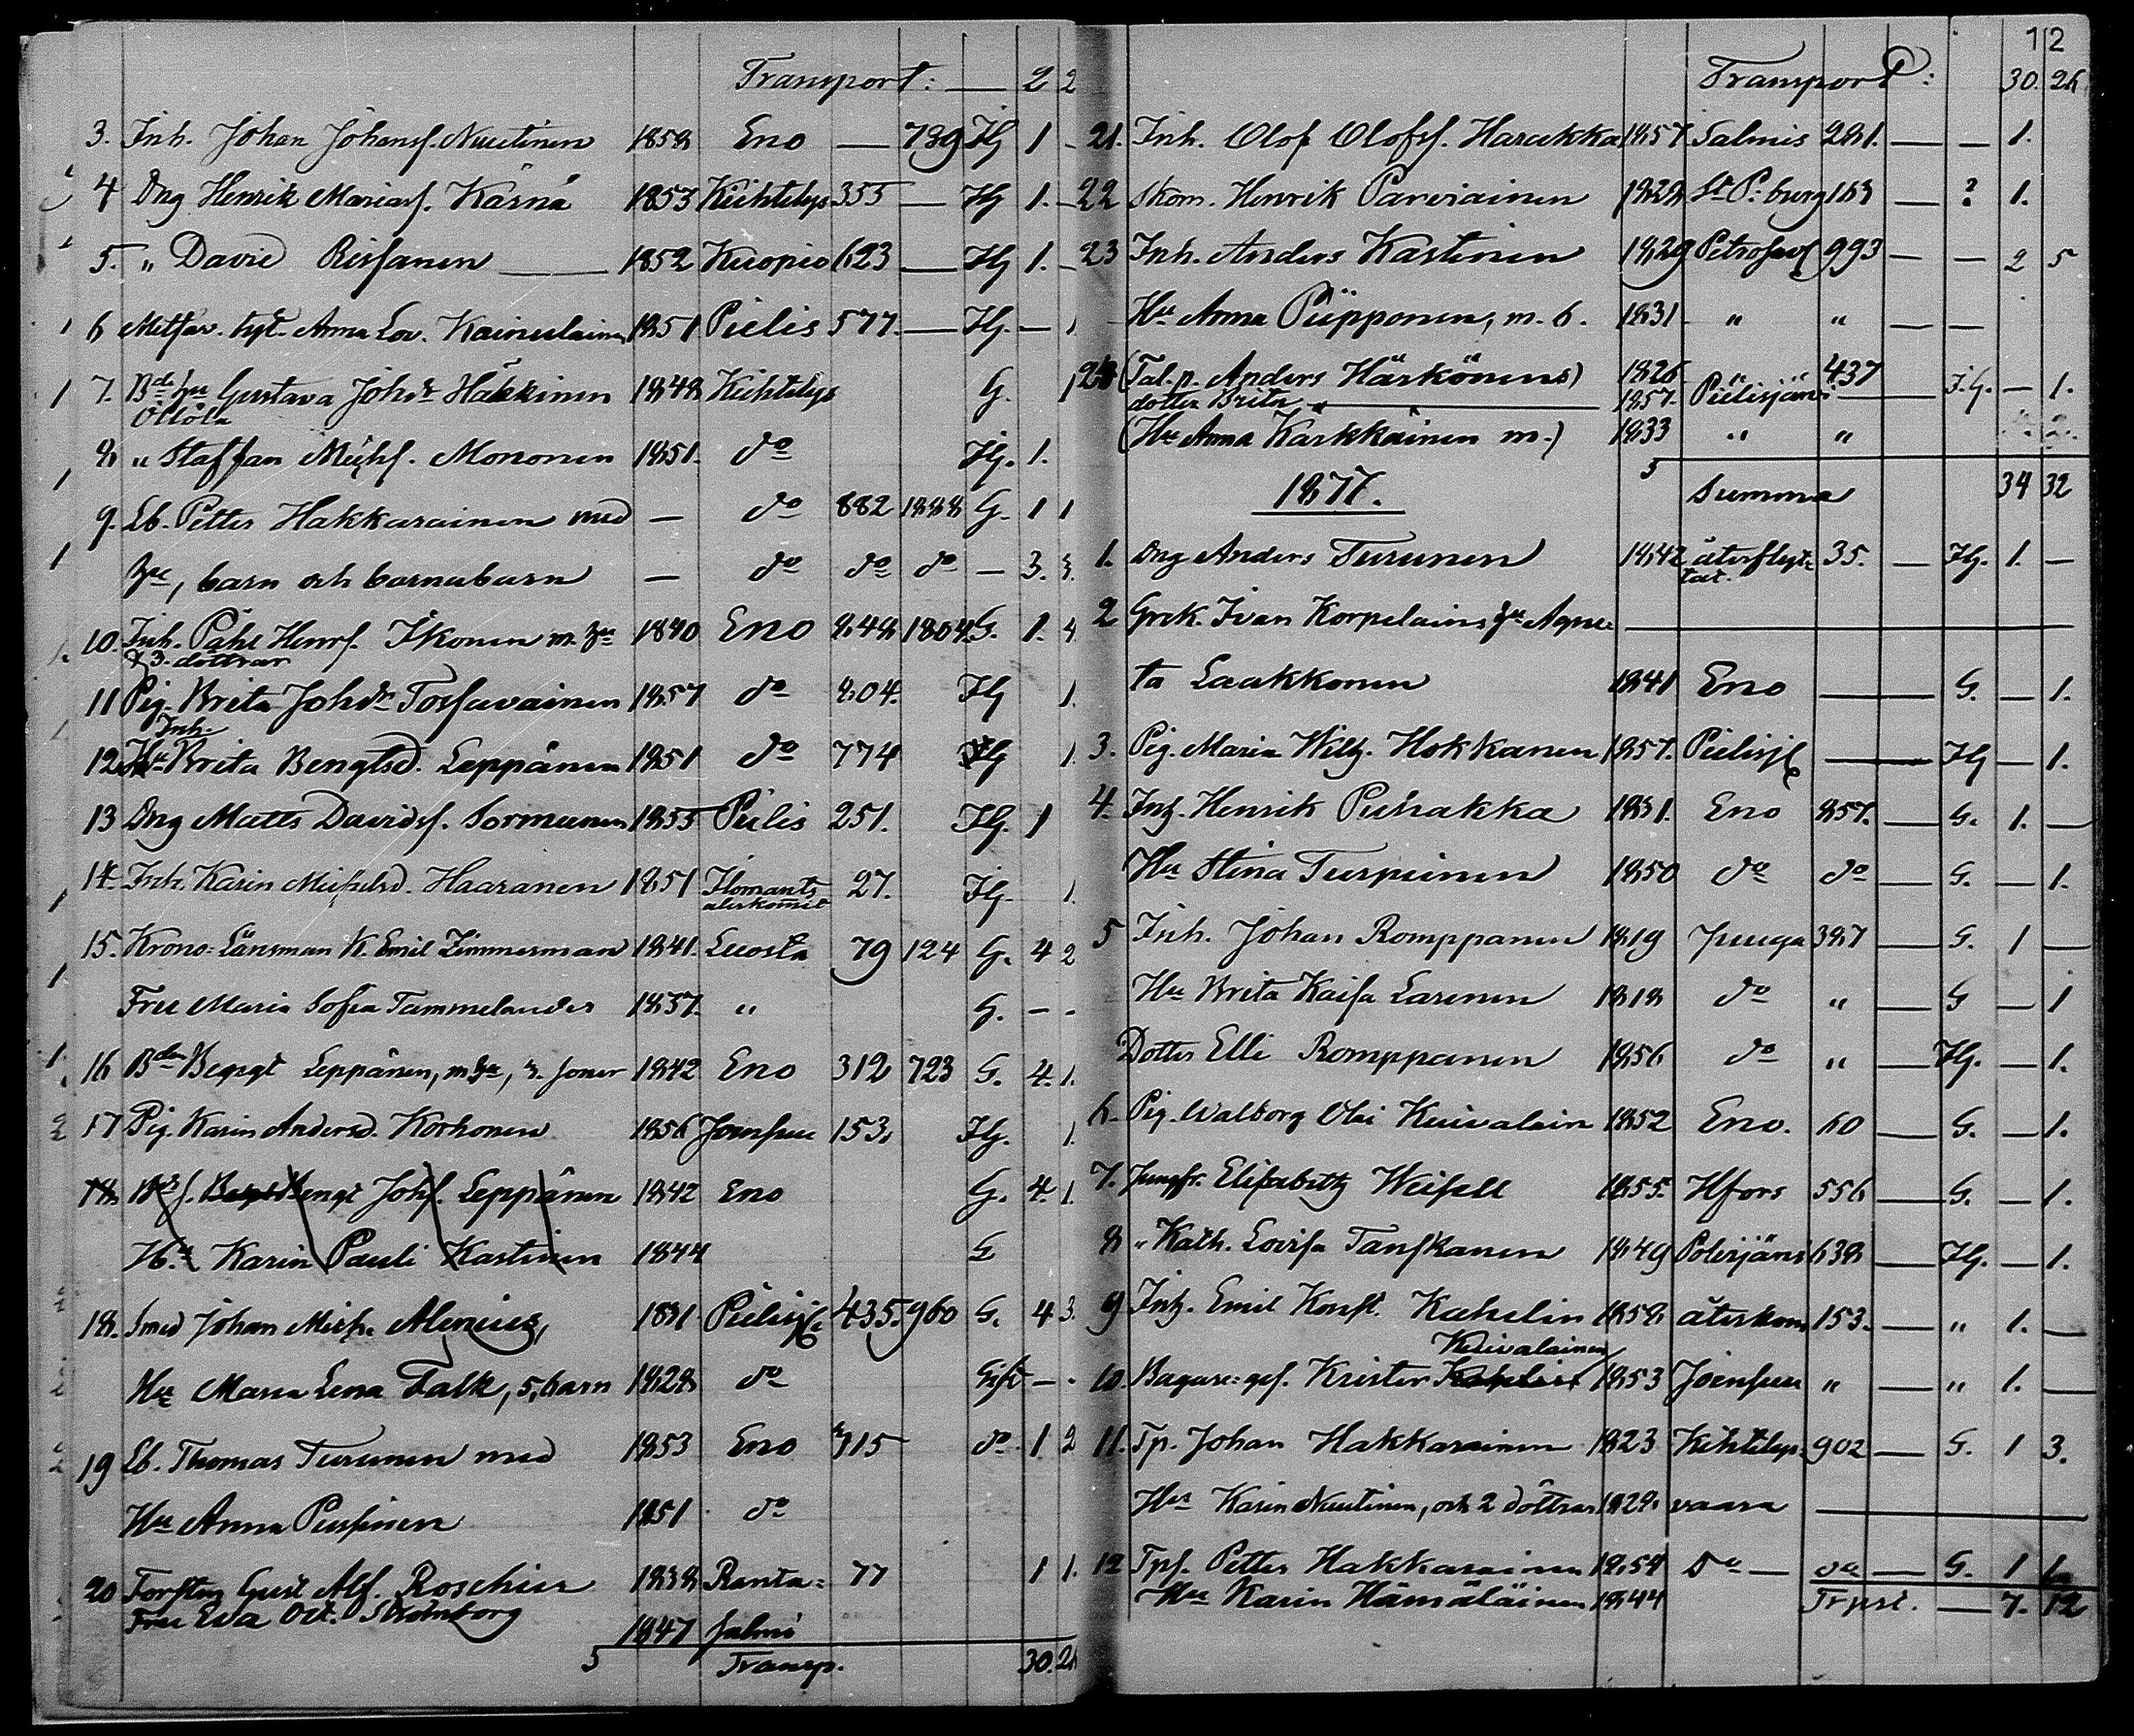 Transport: — 2 2
3. Inh. Johan Johansf. Nuutinen 1858 Eno — 739 Ig 1 -
4 Dng Henrik Mariasf. Kärnä 1853 Kiihtelys 355 — Ig 1. -
5. " David Reisanen — 1852 Kuopio 623 — Ig 1. -
6 Anna Lov. Kainulainen 1851 Pielis 577. — Ig. — 1
7. Gustava Joh. Häkkinen 1848 Kiihtelys G. 1
Ollöla
8 " Staffan Michf. Mononen 1851. do Ig. 1.
9. Lb. Petter Hakkarainen med — do 882 1888 G. 1 1
hu, barn och barnabarn — do do do — 3. 3.
10. Inh. Påhl Henrf. Ikonen m. hu 1840 Eno 848 1804 G. 1. 4.
& 3. döttrar
11 Pig. Brita Johdr Tossavainen 1857 do 804. Ig 1.
Inh.
12 Hu Brita Bengtsd. Leppänen 1851 do 774 Ig 1.
13 Dng Matts Davidsf. Sormunen 1855 Pielis 251. Ig. 1
14. Inh. Karin Michelsd. Haaranen 1851 Ilomants 27. Ig. 1.
återkommit
15. Krono-Länsman K. Emil Zimmerman 1841. Luosta 79 124 G. 4 2
Fru Maria Sofia Tammelander 1837. " G. - -
16 Bden Bengt Leppänen, m hu, 3. soner 1842 Eno 312 723 G. 4. 1.
17 Pig. Karin Andersd. Korhonen 1856 Joensuu 153. Ig. 1.
18. Bengt Johf. Leppänen 1842 Eno G. 4. 1.
Hu Karin Pauli Kastinen 1844 G
18. Smed Johan Mich. Alenius, 1831 Pielisj 435. 960 G. 4 3.
Hu Maria Lena Falk, 5, barn 1828 do Gift — -
19 Lb. Thomas Turunen med 1853 Eno 715 do 1 2
Hu Anna Pussinen 1851 do
20 Forstm Gust Alf. Roschier 1838 Ranta= 77 1 1.
Fru Eva Oct. Strömborg 1847 salmi
5 Transp. 30. 26
12
Transport: 30. 26
21. Inh. Olof Olofsf. Harakka 1857 Salmis 281. — — 1.
22 Skom. Henrik Parviainen 1828 St P.burg 163 — ? 1.
23 Inh. Anders Kastinen 1829 Petrosav 993 — — 2 5
Hu Anna Piipponen, m. 6. 1831 " " — —
24 (Tal. p. Anders Härkönens) 1826 " " 437
dotter Brita — 1857. Pielisjärvi — I.G. — 1.
(Hu Anna Karkkäinen m.) 1833 " "
5 Summa 34 32
1877.
1. Dng Anders Turunen 1842 återflyt= 35. — Ig. 1. —
tat.
2 Grek. Ivan Korpelains hu Agne= —
ta Laakkonen 1841 Eno — G. — 1.
3. Pig. Maria Wilh. Hokkanen 1857. Pielisj — Ig — 1.
4. Inh. Henrik Puhakka 1831. Eno 857. — G. 1. —
Hu Stina Turpeinen 1850 do do — G. — 1.
5 Inh. Johan Romppanen 1819 Juuga 387 — G. 1 —
Hu Brita Kaisa Larinen 1818 do " — G — 1
Dotter Elli Romppanen 1856 do " — Ig. — 1.
6. Pig. Walborg Olai Kuivalain 1852 Eno. 60 — G. — 1.
7. Jungfr. Elisabeth Weisell 1855. Hfors 556 — G. — 1.
8 " Kath. Lovisa Tanskanen 1849 Polvijärvi 638 — Ig. — 1.
9 Inh. Emil Konst. Kahelin 1858 återkom 153. — " 1. —
Kuivalainen
10. Bagare-ges. Krister Kahelin 1853 Joensuu " — " 1. —
11. Tp. Johan Hakkarainen 1823 Kihtelys= 902 — G. 1 3.
Hu Karin Nuutinen, och 2 döttrar 1828. vaara —
12 Tpf. Petter Hakkarainen 1854 Do — do — G. 1 1
Hu Karin Hämäläinen 1844 Trpst. — 7. 12